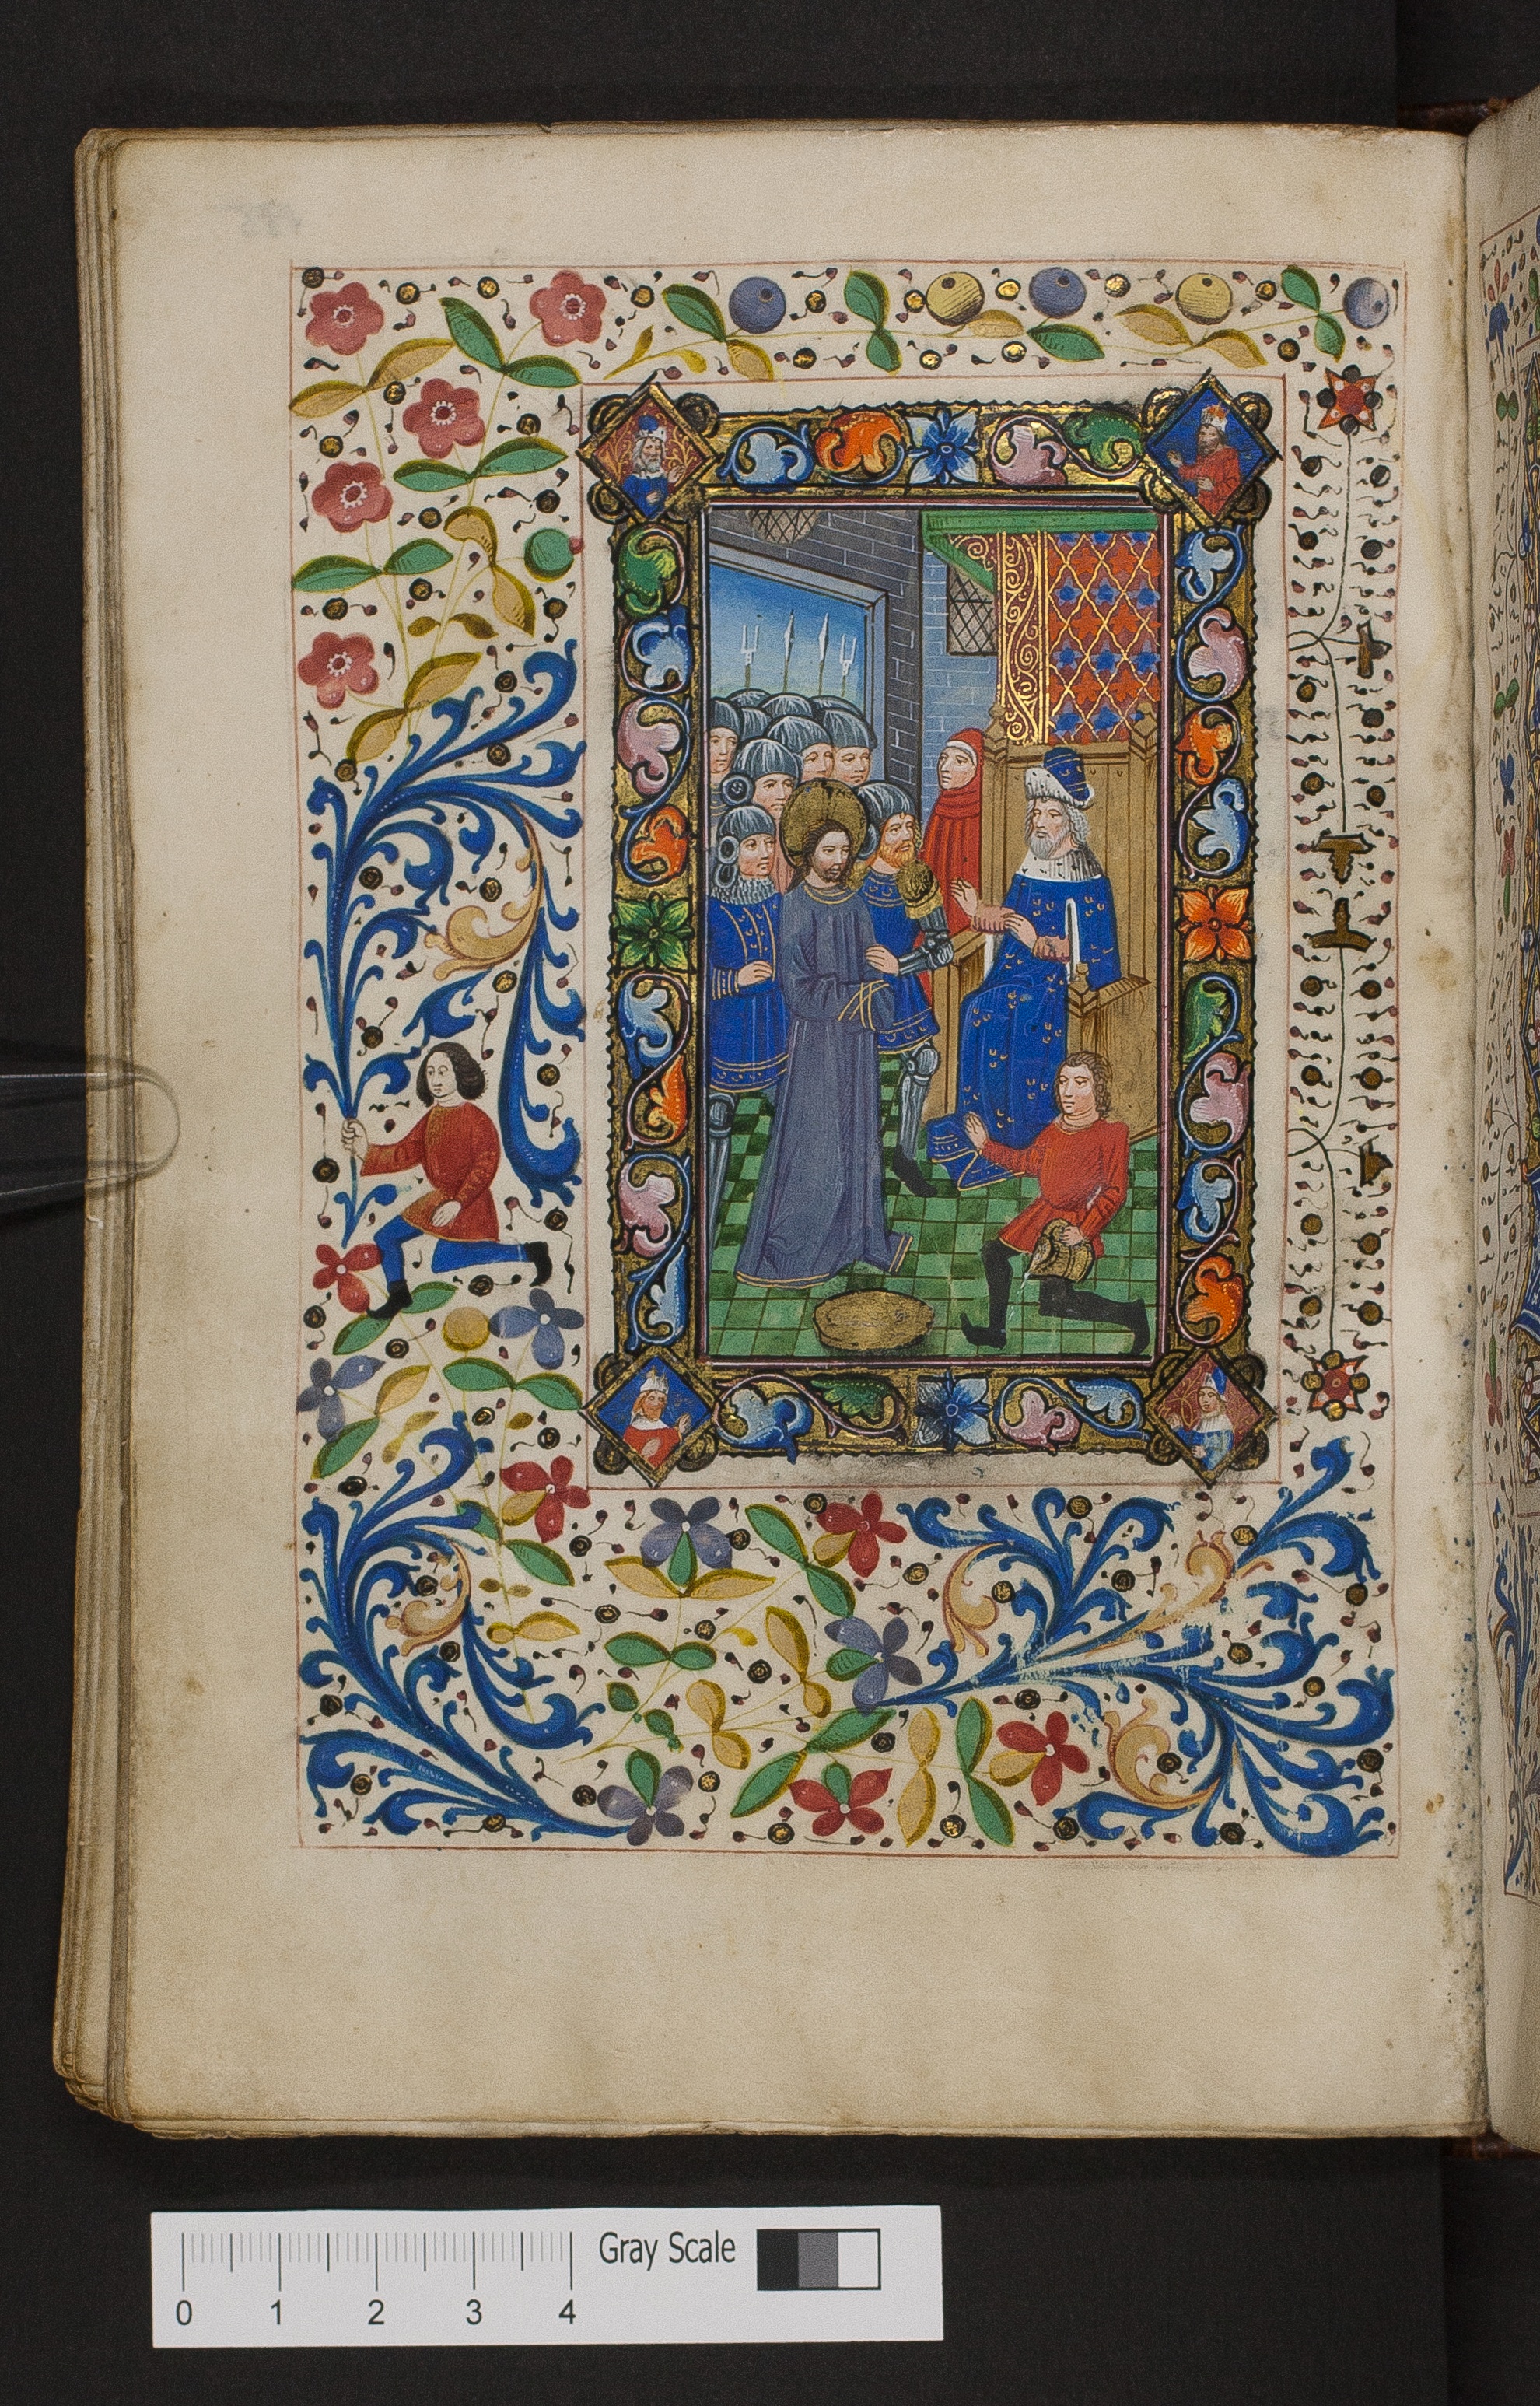 Gray Scale
0 1 2 3 4